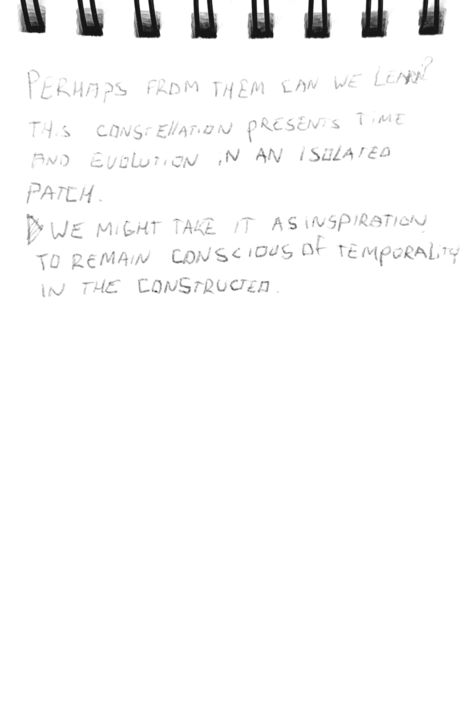 PERHAPS FROM THEM CAN WE LEARN?
THIS CONSTELLATION PRESENTS TIME
AND EVOLUTION IN AN ISOLATED
PATCH.
WE MIGHT TAKE IT AS INSPIRATION
TO REMAIN CONSCIOUS OF TEMPORALITY
IN THE CONSTRUCTED.